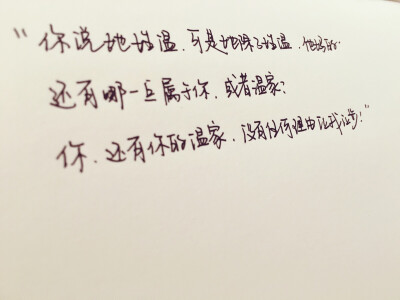 “你说她姓温，可是她除了姓温，他妈的
还有哪一点属于你，或者温家？
你，还有你的温家，没有任何理由让我让步！”